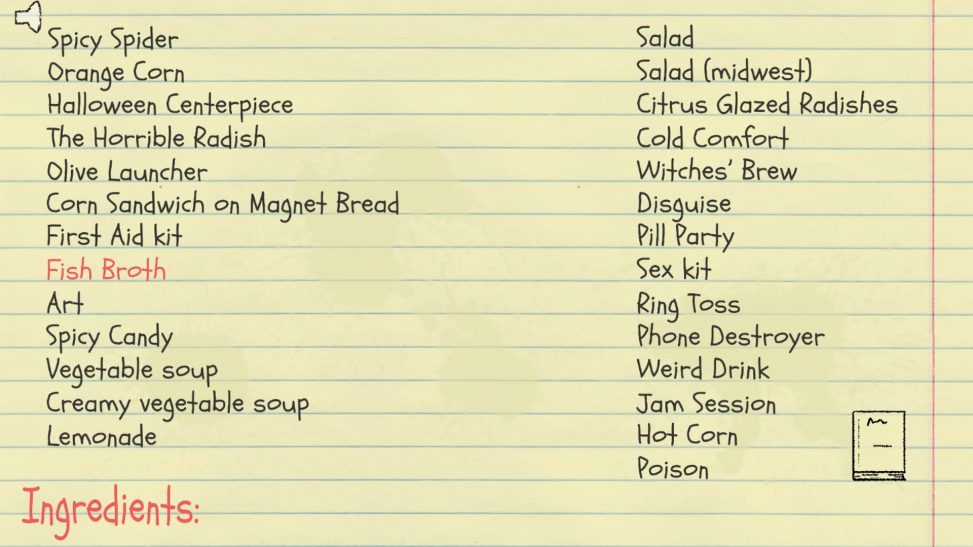 Spicy Spider
Orange Corn
Halloween Centerpiece
The Horrible Radish
Olive Launcher
Corn Sandwich on Magnet Bread
First Aid kit
Fish Broth
Art
Spicy Candy
Vegetable soup
Creamy vegetable soup
Lemonade
Salad
Salad (midwest)
Citrus Glazed Radishes
Cold Comfort
Witches' Brew
Disguise
Pill Party
Sex kit
Ring Toss
Phone Destroyer
Weird Drink
Jam Session
Hot Corn
Poison
Ingredients: